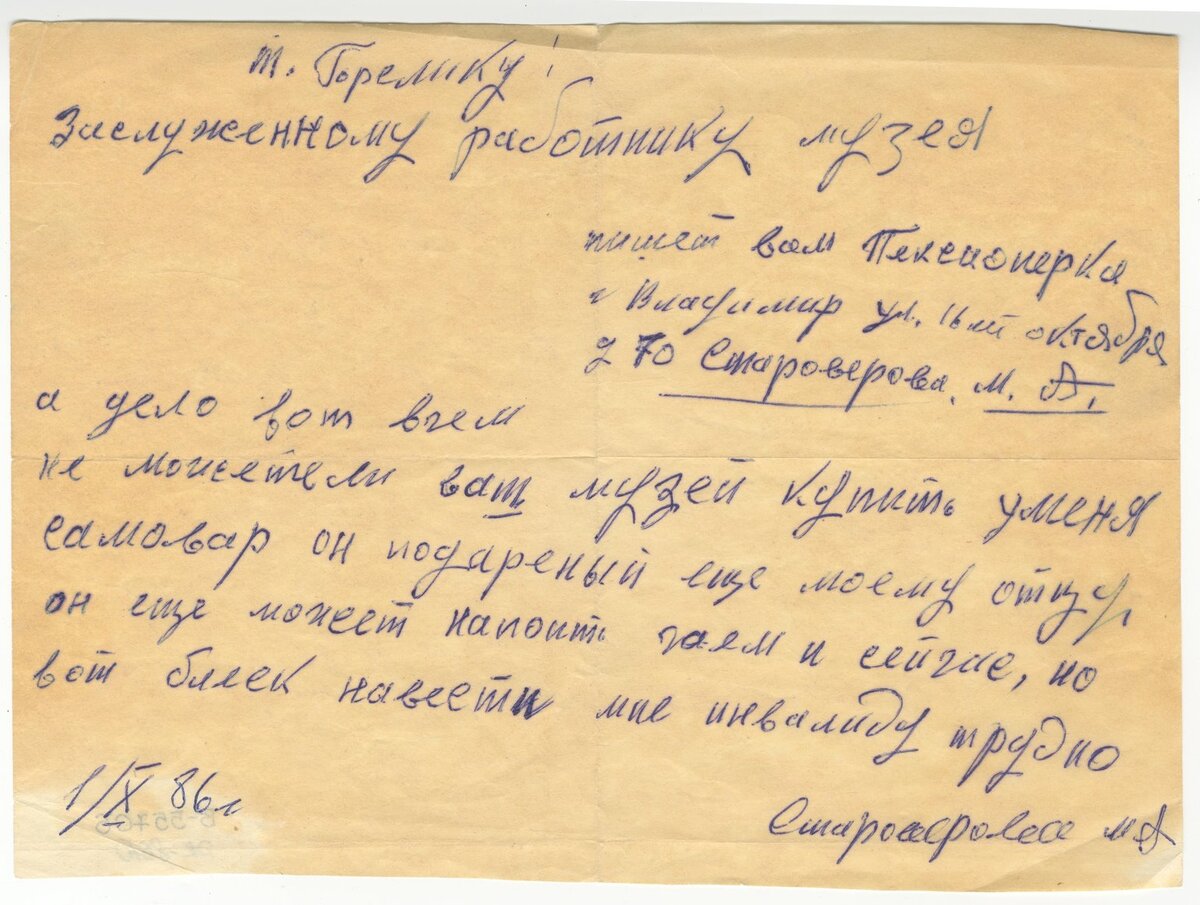 т. Горелику!
Заслуженному работнику музея
пишет вам Пенсионерка
г Владимир ул. Iой октября
д 70 Староверова. М. А.
а дело вот вчем
не можетели ваш музей купить уменя
самовар он подареный еще моему отцу,
он еще может напоить чаем и сейчас, но
вот блеск навести мне инвалиду трудно
1/IX 86г
Староверова МА